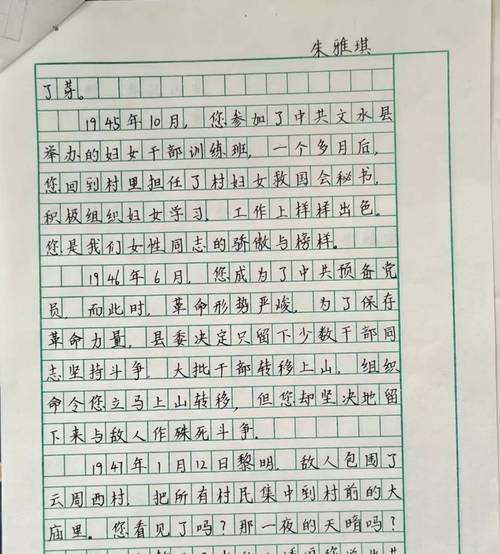 朱雅琪
了芽。
1945年10月，您参加了中共文水县
举办的妇女干部训练班，一个多月后，
您回到村里担任了村妇女救国会秘书，
积极组织妇女学习，工作上样样出色，
您是我们女性同志的骄傲与榜样。
1946年6月，您成为了中共预备党
员，而此时，革命形势严峻，为了保存
革命力量，县委决定只留下少数干部同
志坚持斗争，大批干部转移上山，组织
命令您立马上山转移，但您却坚决地留
下来与敌人作殊死斗争。
1947年1月12日黎明，敌人包围了
云周西村，把所有村民集中到村前的大
庙里。您看见了吗？那一夜的天暗吗？